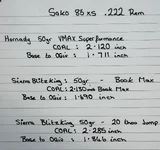 Sako 85 XS .222 Rem
Hornady 50gr VMAX Superformance
COAL: 2.120 inch
Base to Ogive: 1.711 inch
Sierra Blitzking: 50gr - Book Max
COAL: 2.130 inch
Base to Ogive: 1.690 inch
Sierra Blitzking: 50gr - 20 thou Jump
COAL: 2.285 inch
Base to Ogive: 1.866 inch